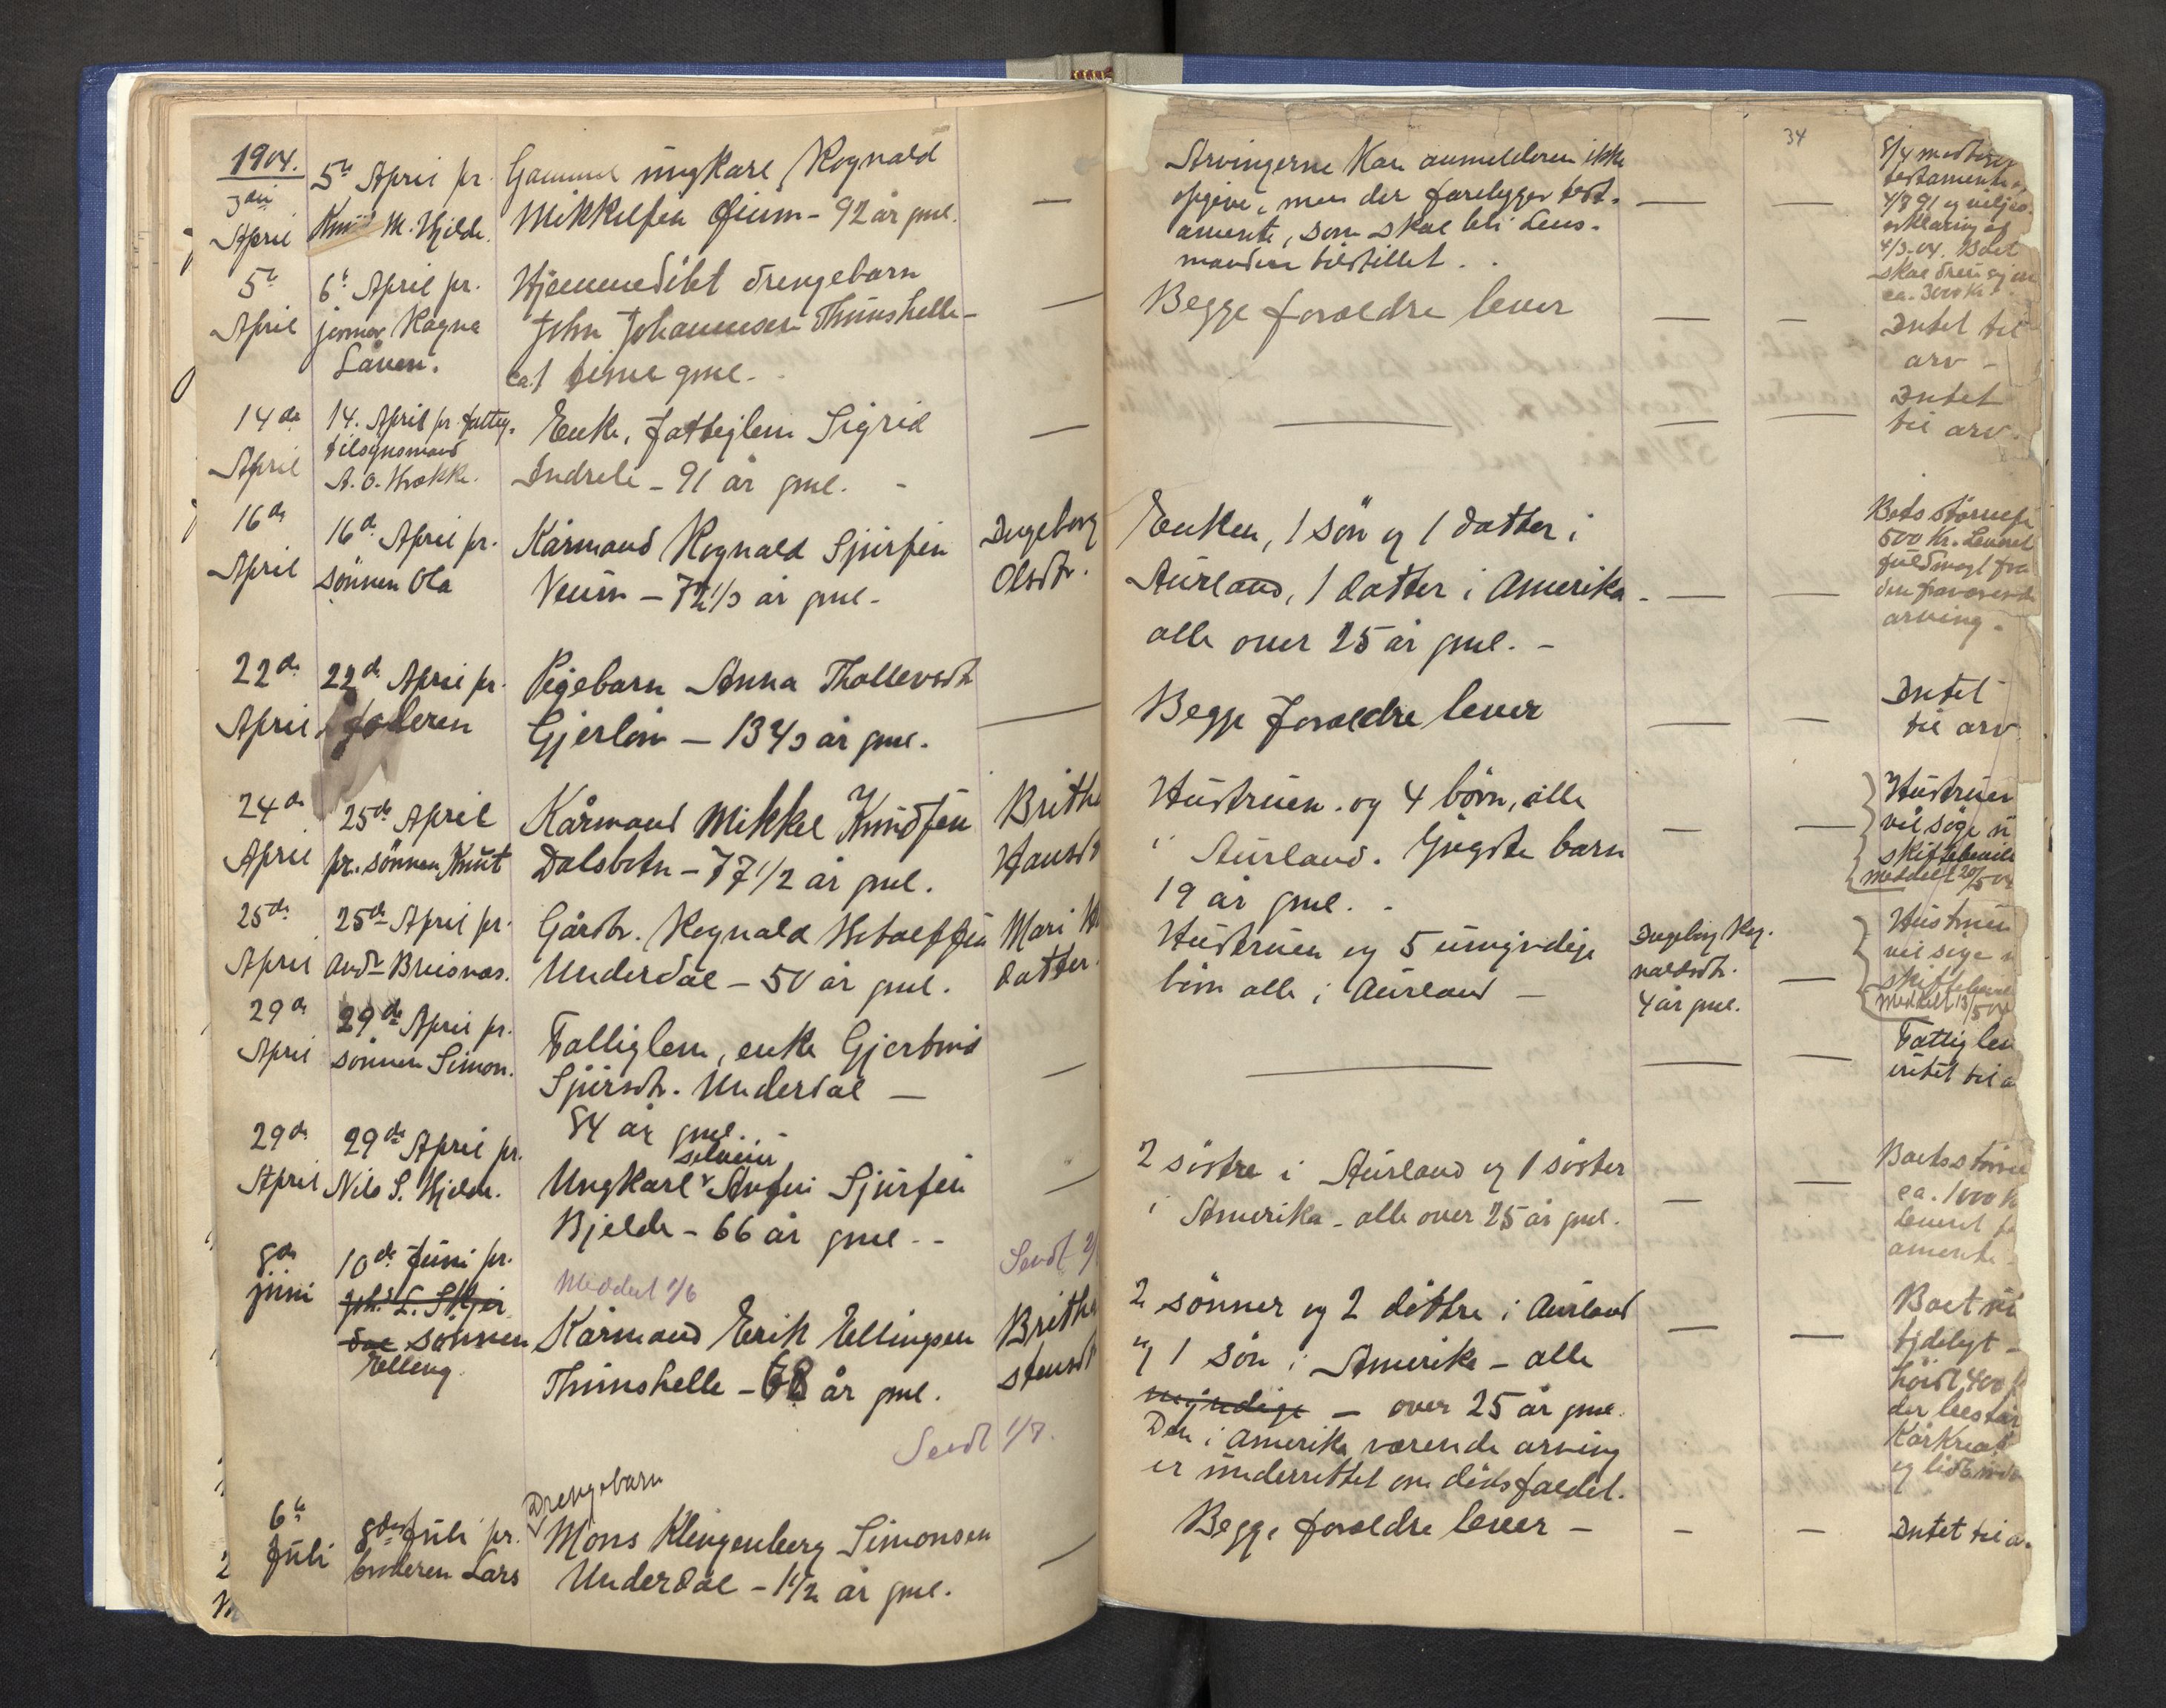 1904.
3die
April
5te April pr.
Knud M. Hjelde.
Gammel ungkarl Rognald
Mikkelsen Øium - 92 år gml.
—
Arvingerne kan anmelderen ikke
opgive, men der forelygger test-
amente, som skal bli Lens-
manden tilstillet.
—
—
34
testamente
4/3 04. Boet
ca. 3000 kr.
5te
April
6te April pr.
jormor Ragna
Låven.
Hjemmedöbt drengebarn
John Johannesen Thünshelle -
ca. 1 time gml.
—
Begge forældre lever
—
—
Intet til
arv -
14de
April
14. April pr. fattig-
tilsynsmand
A. O. Vrokke.
Enke, fattiglem Sigrid
Indreli - 91 år gml. -
—
—
—
—
Intet
til arv.
16de
April
16de April pr.
sönnen Ola
Kårmand Rognald Sjursen
Veum - 72 1/3 år gml -
Ingeborg
Olsdtr.
Enken, 1 sön og 1 datter i
Aurland, 1 datter i Amerika -
alle over 25 år gml. -
—
—
Bots störrelse
500 kr. Leveret
fuldmagt fra
den fraværende
arving -
22de
April
22de April pr.
faderen
Pigebarn Anna Thollevsdtr
Gjerløu - 13 2/3 år gml.
—
Begge forældre lever
—
—
Intet
til arv
24de
April
25de April
pr. sönnen Knut
Kårmand Mikkel Knudsen
Dalsbotn - 77 1/2 år gml.
Brithe
Hansdt
Hustruen og 4 börn, alle
i Aurland. Yngste barn
19 år gml. -
—
—
Hustruen
vil söge u
skiftebevill
meddelt 20/5 04
25de
April
25de April pr.
Andr Brusnæs.
Gårdbr. Rognald Botolfsen
Underdal - 50 år gml.
Mari
datter.
Hustruen og 5 umyndige
börn alle i Aurland -
Ingebrg Rog-
naldsdtr.
4 år gml.
—
Hustruen
vil söge u
skiftebevill
meddelt 13/5 04
29de
April
29de April pr.
sönnen Simon.
Fattiglem, enke Gjertrud
Sjursdtr. Underdal -
84 år gml. -
—
—
—
—
Fattiglem
intet til a
29de
April
29de April pr.
Nils S. Hjelde.
selveier
Ungkarl v Anfin Sjursen
Bjelde - 66 år gml - -
—
2 söstre i Aurland og 1 söster
i Amerika - alle over 25 år gml.
—
—
Boets större
ca. 1000 k
Leveret
amente -
Meddelt 1/6
Sendt
8de
juni
10de Juni pr.
Joh. L. Skjer
dal sönnen
Elling
Kårmand Erik Ellingsen
Thünshelle - 68 år gml.
Brithe
stensdt
2 sönner og 2 döttre i Aurland
og 1 sön i Amerika - alle
myndige — over 25 år gml.
Den i Amerika værende arving
er underrettet om dödsfaldet.
—
—
Boet
höist 400
der består
Kårkreat
Sendt 1/7.
6te
Juli
8de Juli pr.
broderen Lars
Drengebarn
Mons Klingenberg Simonsen
Underdal - 1 1/2 år gml.
—
Begge forældre lever -
-
—
Intet til a.